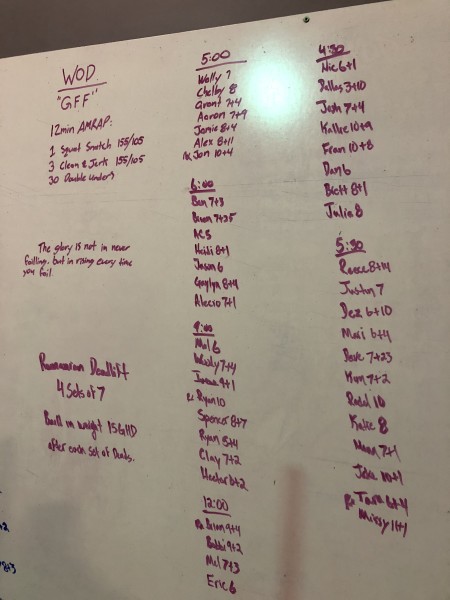 WOD
"GFF"
12min AMRAP:
1 Squat Snatch 155/105
3 Clean & Jerk 155/105
30 Double Unders
The glory is not in never
failing, but in rising every time
you fail.
Romanian Deadlift
4 Sets of 7
Build in weight 15 GHD
after each set of
5:00
Wally 7
Chelby 8
Grant 7+4
Aaron 7+9
Jamie 8+4
Alex 8+11
Rx Jon 10+4
6:00
Ben 7+3
7+25
Heidi 8+1
Jason 6
8+4
Alecio 7+1
9:00
Mol 6
Wooly 7+4
9+1
Rx Ryan 10
Spencer 8+7
Ryan 5+4
Clay 7+2
Hector 6+2
12:00
Rx Brian 9+4
Bobbi 9+2
Mel 7+3
Eric 6
4:30
Nic 6+1
Dallas 3+10
Josh 7+4
Kallie 10+9
Fran 10+8
Dan 6
Brett 8+1
Julie 8
5:30
Reece 8+4
Justin 7
Dez 6+10
Mari 6+4
Dave 7+23
Kim 7+2
10
Katie 8
7+1
Jake 10+1
Rx Tara 6+4
Missy 11+1
+2
8+3